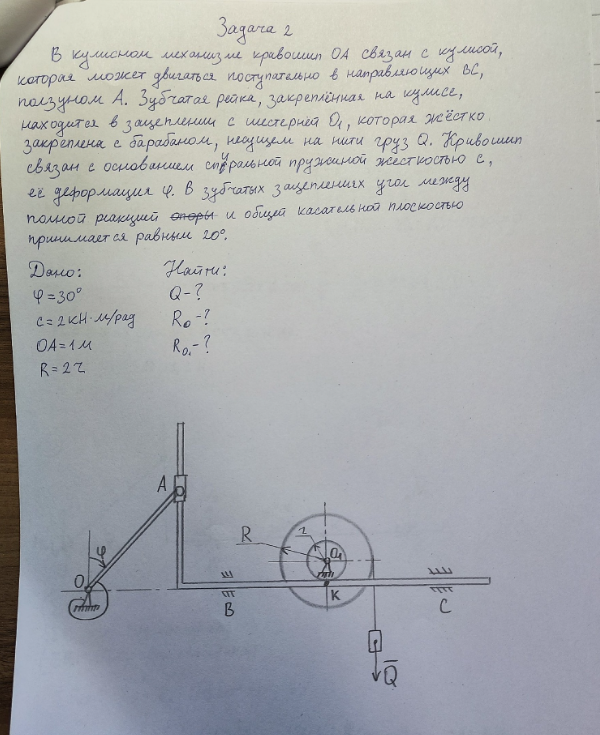 Задача 2
В кулисном механизме кривошип OA связан с кулисой,
которая может двигаться поступательно в направляющих BC,
ползуном A. Зубчатая рейка, закреплённая на кулисе,
находится в зацеплении с шестерней O₁, которая жёстко
закреплена с барабаном, несущем на нити груз Q. Кривошип
связан с основанием спиральной пружиной жёсткостью c,
её деформация φ. В зубчатых зацеплениях угол между
полной реакцией опоры и общей касательной плоскостью
принимается равным 20°.
Дано: Найти:
φ=30° Q-?
c=2кН·м/рад R₀-?
OA=1м R₀₁-?
R=2r
A
R r O₁
φ
O
B K C
Q̅